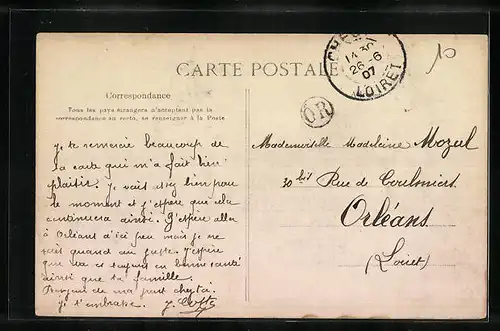 CARTE POSTALE
14 30
26 - 6
07
LOIRET
OR
Correspondance
Tous les pays étrangers n'acceptent pas la
correspondance au recto, se renseigner à la Poste
Je te remercie beaucoup de
la carte qui m'a fait bien
plaisir. Je vais assez bien pour
le moment et j'espère que cela
continuera ainsi. J'espère aller
à Orléans d'ici peu mais je ne
sais quand au juste. J'espère
que tu es toujours en bonne santé
ainsi que ta famille.
Bonjour de ma part chez toi.
Je t'embrasse. J.
Mademoiselle Madeleine Mozul
30 bis Rue de Coulmiers
Orléans
(Loiret)